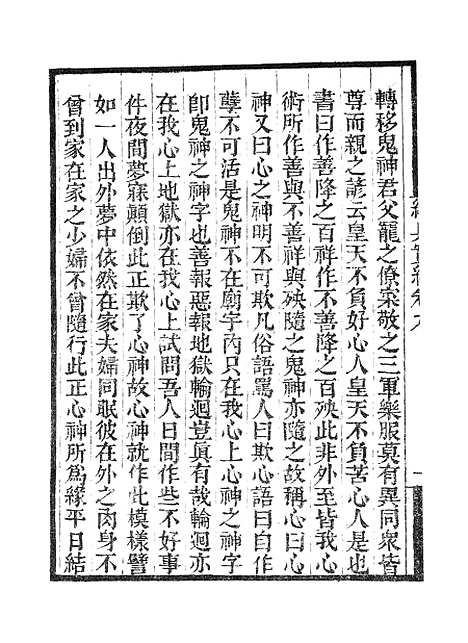 轉移鬼神君父寵之僚寀敬之三軍樂服莫有異同衆皆
尊而親之諺云皇天不負好心人皇天不負苦心人是也
書曰作善降之百祥作不善降之百殃此非外至皆我心
術所作善與不善祥與殃隨之鬼神亦隨之故稱心曰心
神又曰心之神明不可欺凡俗語罵人曰欺心語曰自作
孽不可活是鬼神不在廟宇內只在我心上心神之神字
卽鬼神之神字也善報惡報地獄輪迴豈眞有哉輪迴亦
在我心上地獄亦在我心上試問吾人日間作些不好事
件夜間夢寐顛倒此正欺了心神故心神就作此模樣譬
如一人出外夢中依然在家夫婦同眠彼在外之肉身不
曾到家在家之少婦不曾隨行此正心神所爲緣平日結